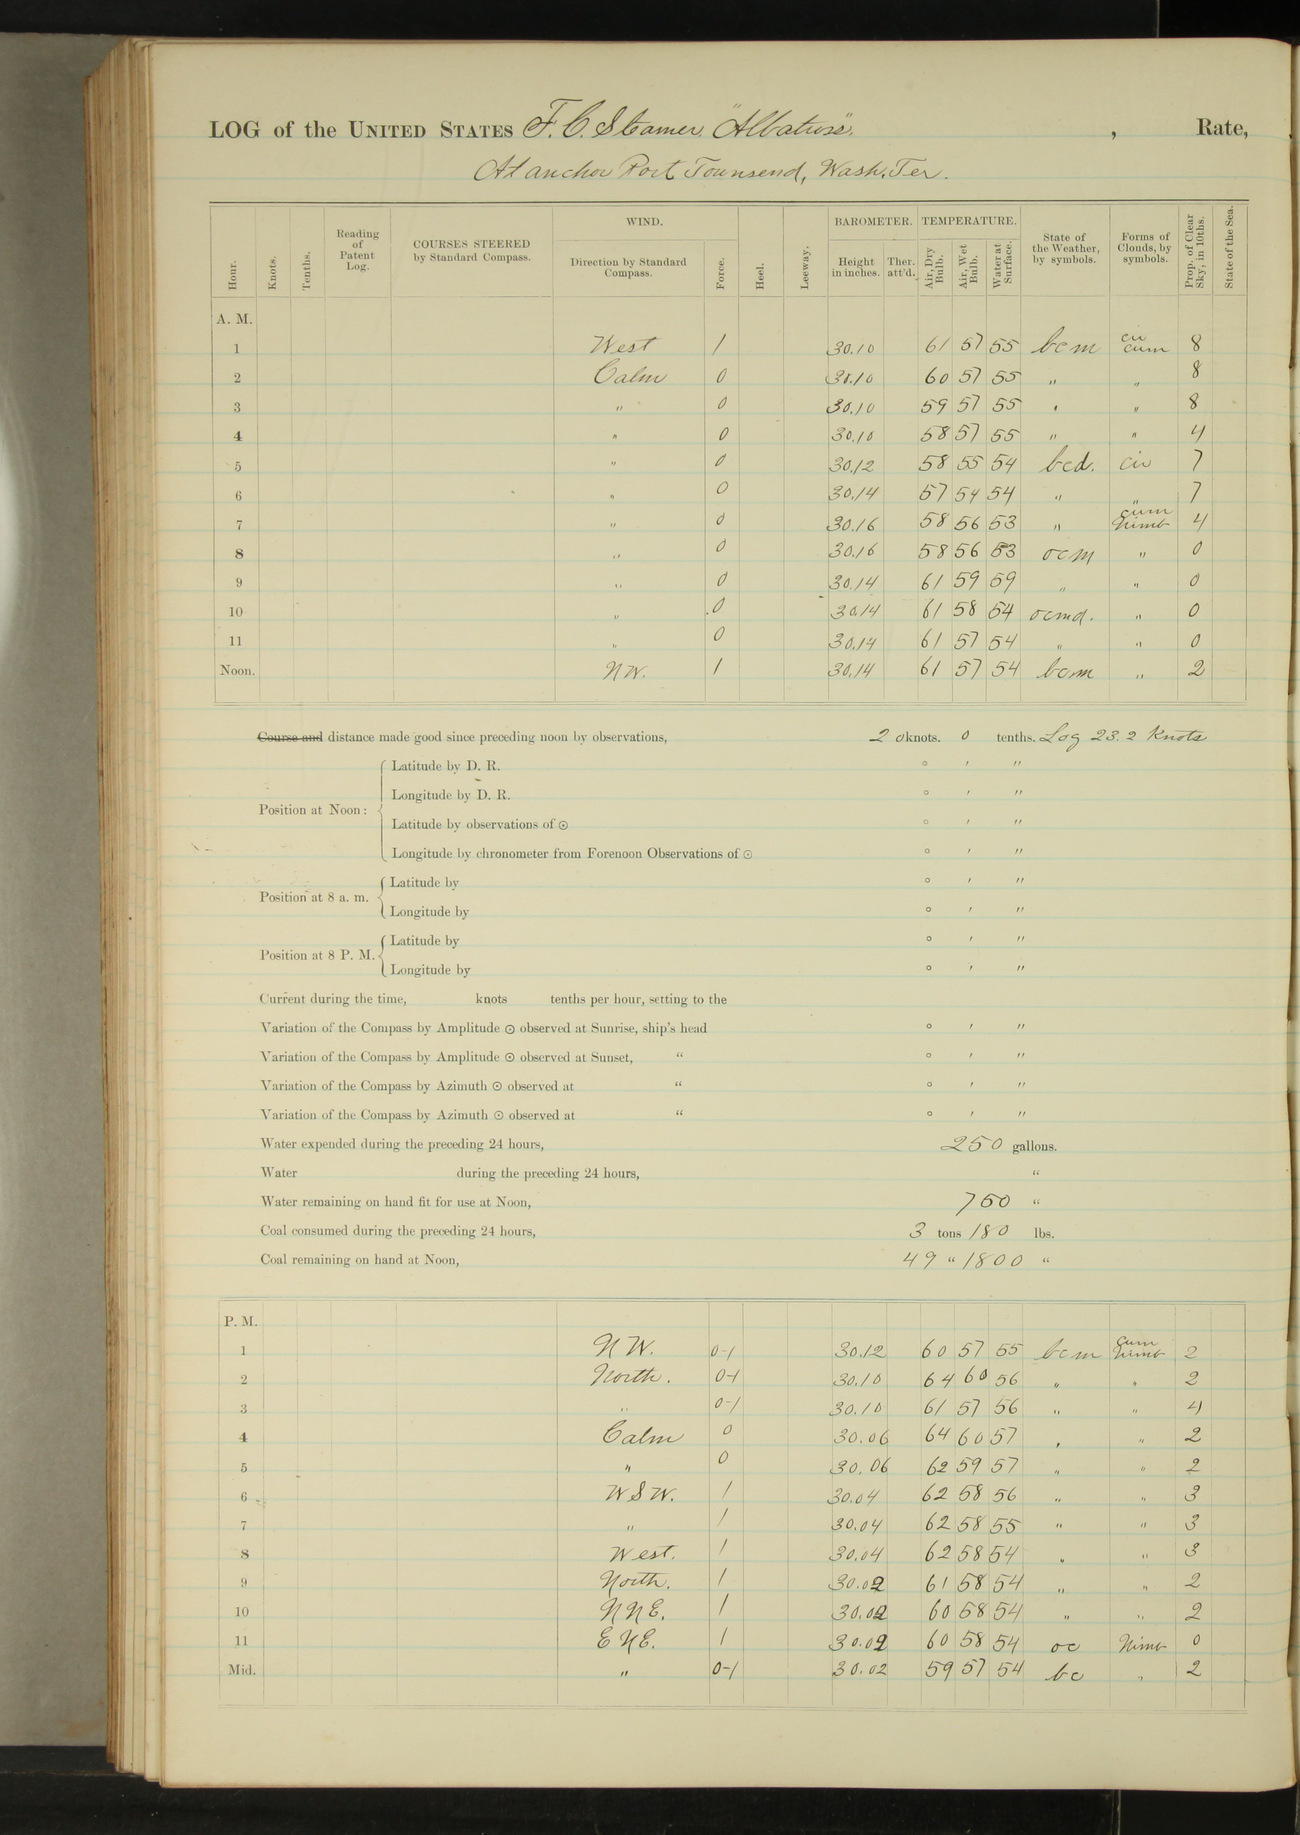 LOG of the UNITED STATES F. C. Steamer "Albatross" , Rate,
At anchor Port Townsend, Wash. Ter.
Hour. Knots. Tenths. Reading of Patent Log. COURSES STEERED by Standard Compass. WIND. Direction by Standard Compass. Force. Heel. Leeway. BAROMETER. Height in inches. Ther. att'd. TEMPERATURE. Air, Dry Bulb. Air, Wet Bulb. Water at Surface. State of the Weather, by symbols. Forms of Clouds, by symbols. Prop. of Clear Sky, in 10ths. State of the Sea.
A. M.
1 West 1 30.10 61 57 55 bcm cir cum 8
2 Calm 0 30.10 60 57 55 " " 8
3 " 0 30.10 59 57 55 " " 8
4 " 0 30.10 58 57 55 " " 4
5 " 0 30.12 58 55 54 bcd. cir 7
6 " 0 30.14 57 54 54 " " 7
7 " 0 30.16 58 56 53 " cum nimb 4
8 " 0 30.16 58 56 53 ocm " 0
9 " 0 30.14 61 59 59 " " 0
10 " 0 30.14 61 58 54 ocmd. " 0
11 " 0 30.14 61 57 54 " " 0
Noon. NW. 1 30.14 61 57 54 bcm " 2
Course and distance made good since preceding noon by observations, 20 knots. 0 tenths. Log 23.2 Knots
Position at Noon: Latitude by D. R. ° ′ ″
Longitude by D. R. ° ′ ″
Latitude by observations of ⊙ ° ′ ″
Longitude by chronometer from Forenoon Observations of ⊙ ° ′ ″
Position at 8 a. m. Latitude by ° ′ ″
Longitude by ° ′ ″
Position at 8 P. M. Latitude by ° ′ ″
Longitude by ° ′ ″
Current during the time, knots tenths per hour, setting to the
Variation of the Compass by Amplitude ⊙ observed at Sunrise, ship's head ° ′ ″
Variation of the Compass by Amplitude ⊙ observed at Sunset, " ° ′ ″
Variation of the Compass by Azimuth ⊙ observed at " ° ′ ″
Variation of the Compass by Azimuth ⊙ observed at " ° ′ ″
Water expended during the preceding 24 hours, 250 gallons.
Water during the preceding 24 hours, "
Water remaining on hand fit for use at Noon, 750 "
Coal consumed during the preceding 24 hours, 3 tons 180 lbs.
Coal remaining on hand at Noon, 49 " 1800 "
P. M.
1 NW. 0-1 30.12 60 57 55 bcm cum nimb 2
2 North. 0-1 30.10 64 60 56 " " 2
3 " 0-1 30.10 61 57 56 " " 4
4 Calm 0 30.06 64 60 57 " " 2
5 " 0 30.06 62 59 57 " " 2
6 WSW. 1 30.04 62 58 56 " " 3
7 " 1 30.04 62 58 55 " " 3
8 West. 1 30.04 62 58 54 " " 3
9 North. 1 30.02 61 58 54 " " 2
10 NNE. 1 30.02 60 58 54 " " 2
11 ENE. 1 30.02 60 58 54 oc Nimb 0
Mid. " 0-1 30.02 59 57 54 bc " 2